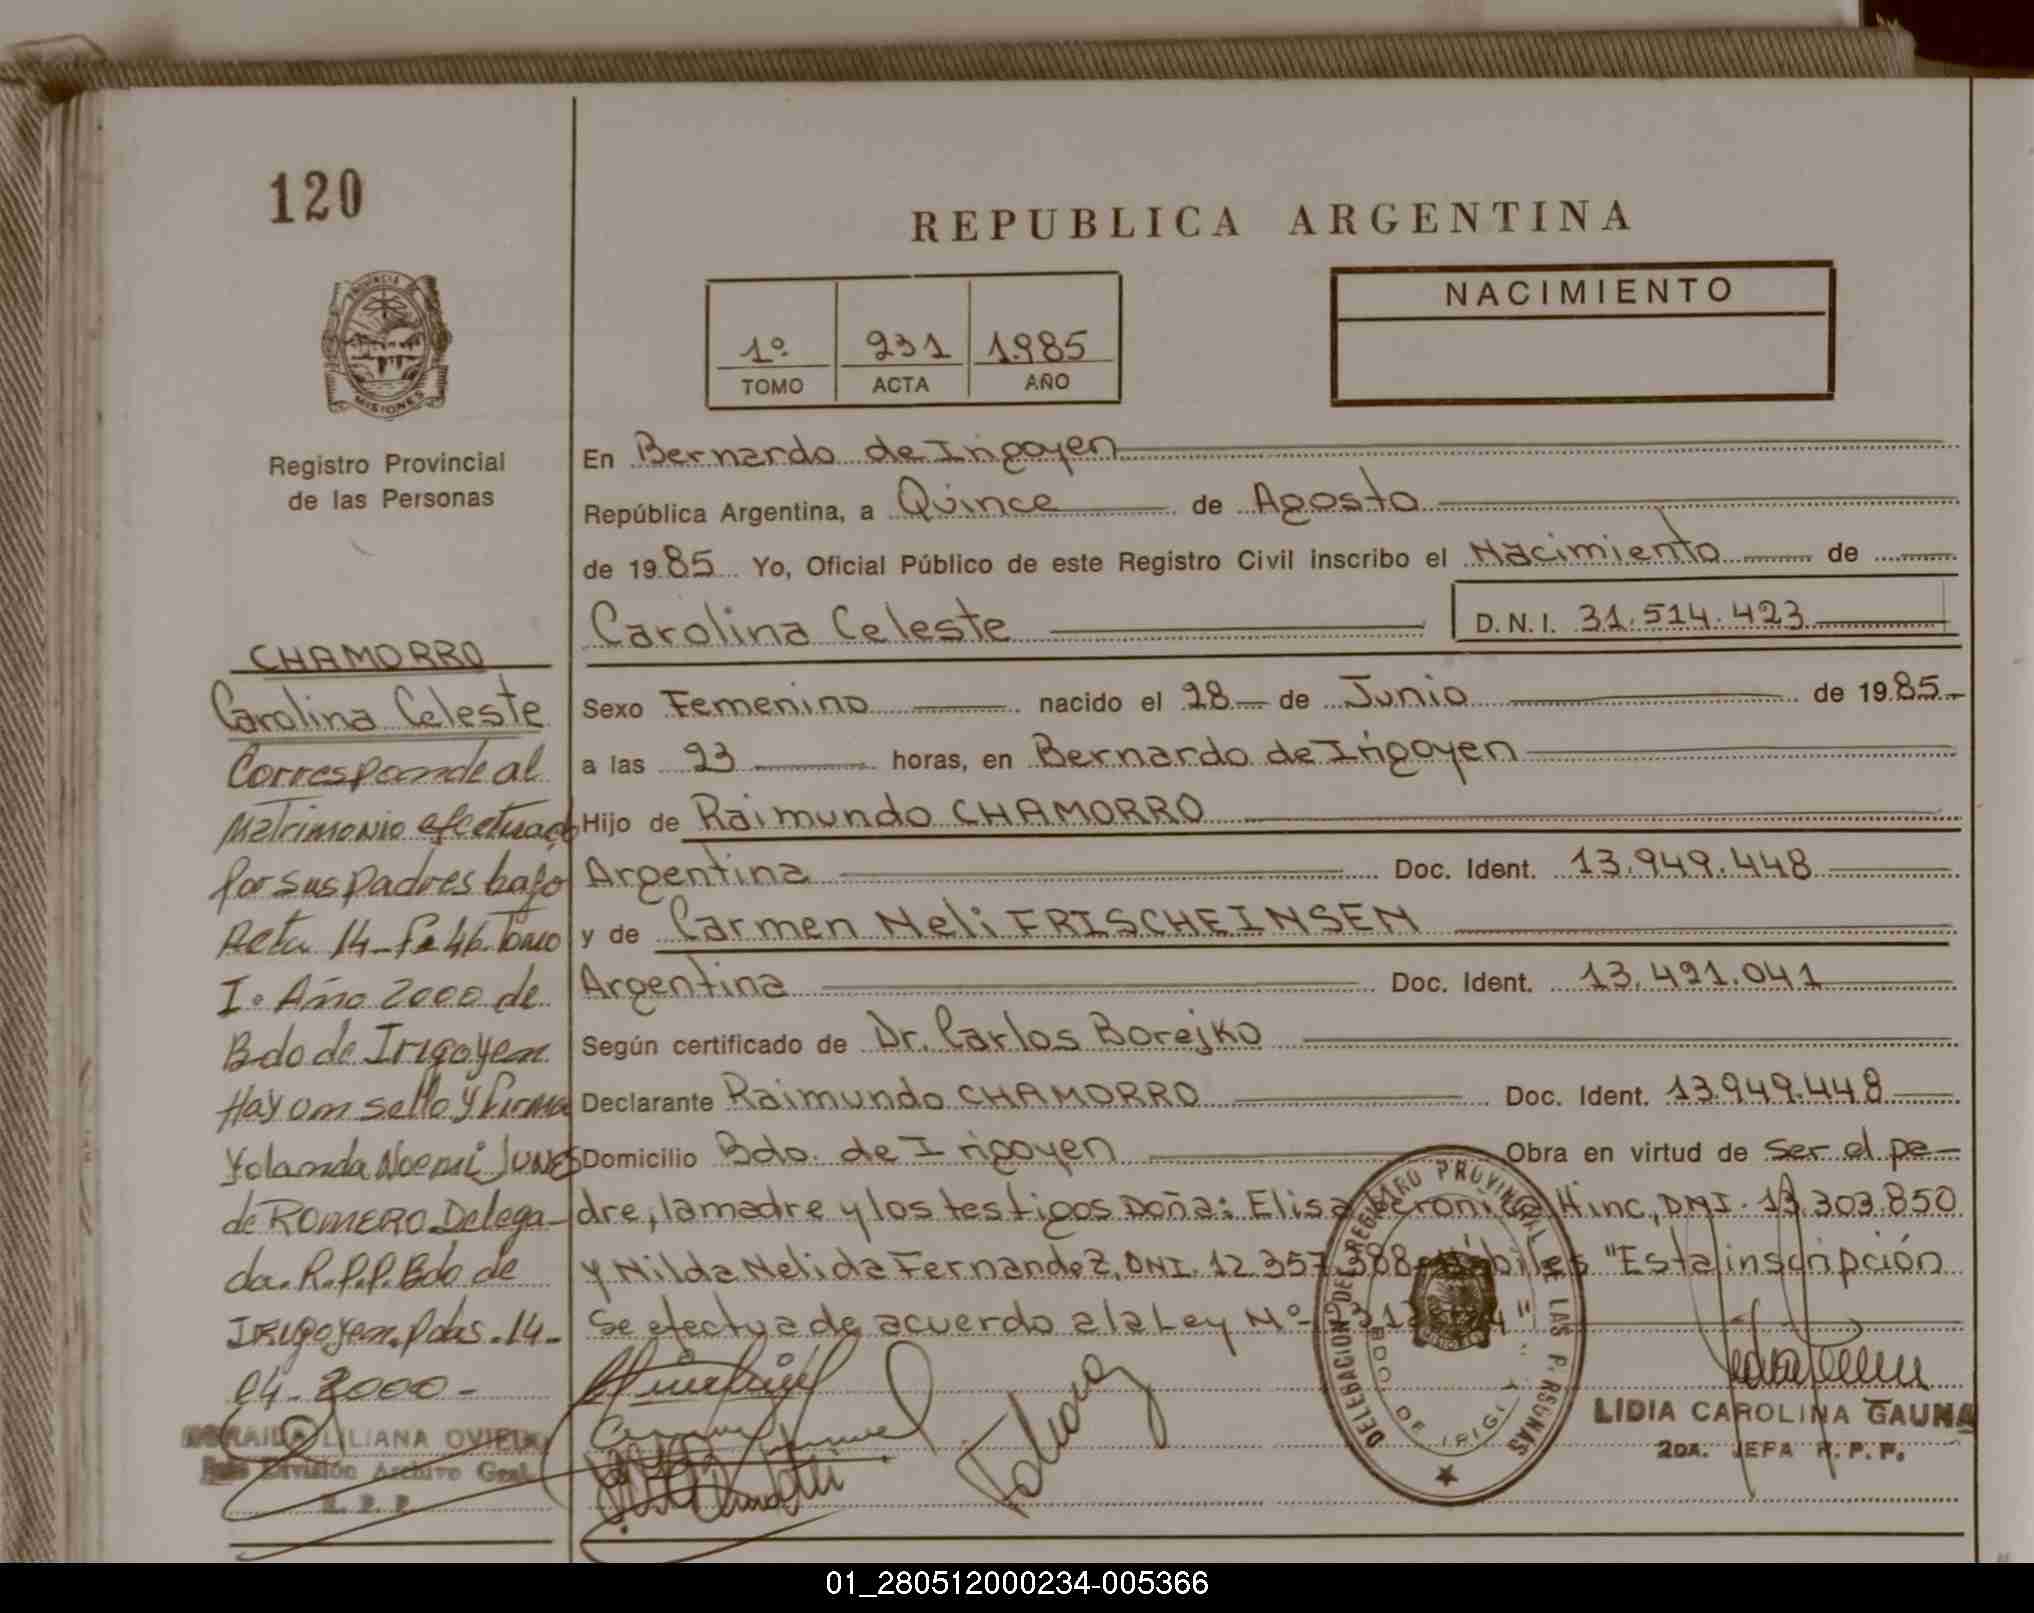 120
REPUBLICA ARGENTINA
PROVINCIA DE
MISIONES
Registro Provincial
de las Personas
1º 231 1985
TOMO ACTA AÑO
NACIMIENTO
En Bernardo de Irigoyen
República Argentina, a Quince de Agosto
de 1985 Yo, Oficial Público de este Registro Civil inscribo el Nacimiento de
Carolina Celeste D.N.I. 31.514.423
Sexo Femenino nacido el 28 de Junio de 1985
a las 23 horas, en Bernardo de Irigoyen
Hijo de Raimundo CHAMORRO
Argentina Doc. Ident. 13.949.448
y de Carmen Neli FRISCHEINSEN
Argentina Doc. Ident. 13.491.041
Según certificado de Dr. Carlos Borejko
Declarante Raimundo CHAMORRO Doc. Ident. 13.949.448
Domicilio Bdo. de Irigoyen Obra en virtud de ser el pa-
dre, la madre y los testigos Doña: Elisa Veronica Hinc, DNI. 303.850
y Nilda Nelida Fernandez, DNI. 12.357 "Esta inscripción
se efectua de acuerdo a la Ley Nº
CHAMORRO
Carolina Celeste
Corresponde al
Matrimonio efectuado
por sus padres bajo
Acta 14-Fº 46. Tomo
Iº Año 2000 de
Bdo de Irigoyen
Hay un sello y firma
Yolanda Noemi JUNES
de ROMERO Delega-
da. R.P.P. Bdo de
Irigoyen. Pdas. 14-
04-2000-
LILIANA OVIEDO
División Archivo Gral.
R. P. P.
DELEGACION DEL REGISTRO PROVINCIAL DE LAS PERSONAS
BDO DE IRIGOYEN
LIDIA CAROLINA GAUNA
2DA. JEFA R.P.P.
01_280512000234-005366